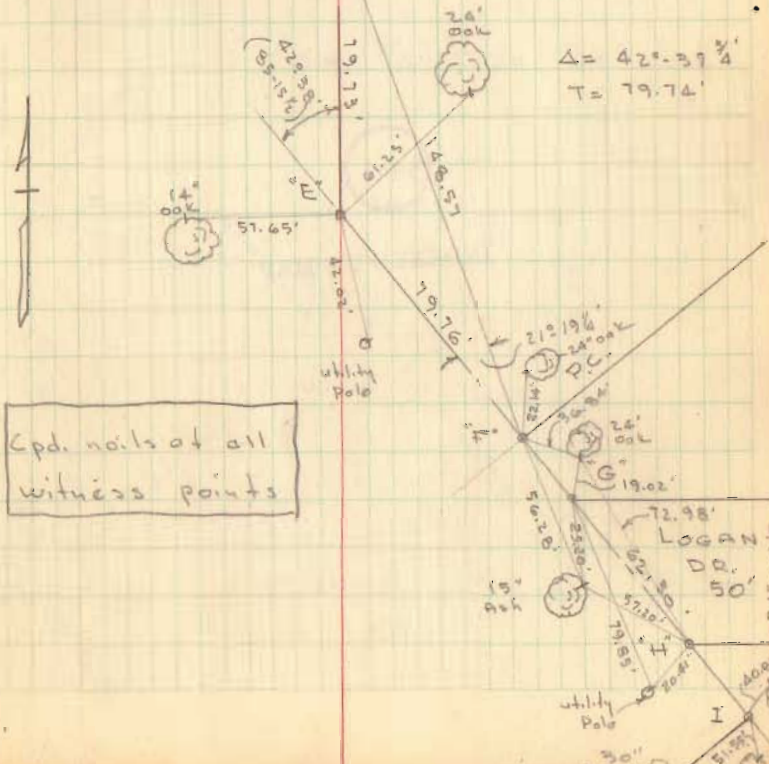 24"
Oak
Δ= 42°-37 3/4'
T= 79.74'
79.73'
42°-38'
(85-15½)
61.25'
148.57
"E"
14"
Oak
57.65'
42.02'
utility
Pole
79.76
21°-19¼'
24" Oak
P.C.
22.14'
36.84'
"F"
24"
Oak
"G"
19.02'
Cpd. nails at all
witness points
72.98'
LOGAN
DR.
50'
56.28'
25.20'
62.50
15"
Ash
57.20'
79.85'
"H"
20.41'
utility
Pole
I
40.0
51.59'
30"